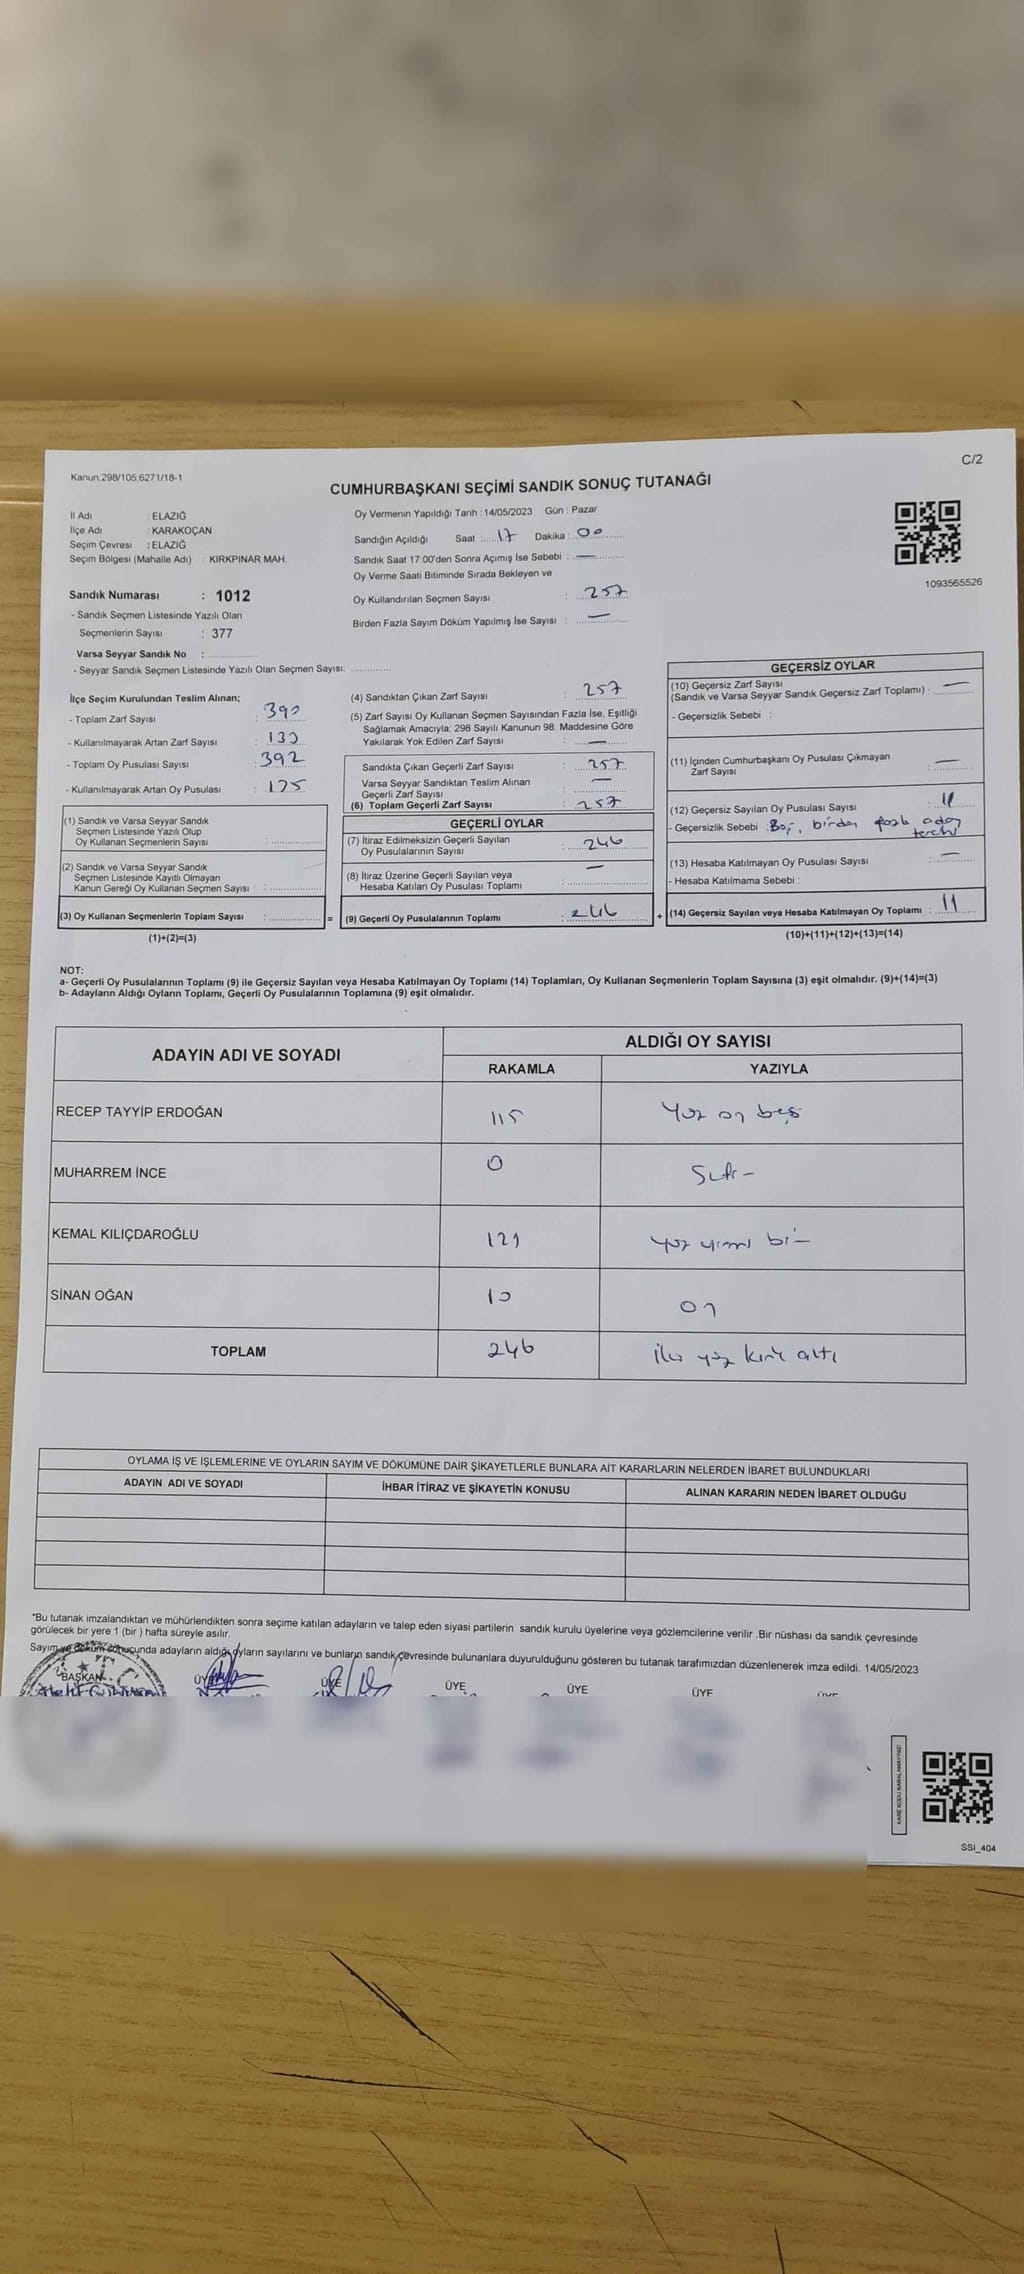 Kanun:298/105,6271/18-1
C/2
CUMHURBAŞKANI SEÇİMİ SANDIK SONUÇ TUTANAĞI
İl Adı : ELAZIĞ
İlçe Adı : KARAKOÇAN
Seçim Çevresi : ELAZIĞ
Seçim Bölgesi (Mahalle Adı) : KIRKPINAR MAH.
Sandık Numarası : 1012
- Sandık Seçmen Listesinde Yazılı Olan
Seçmenlerin Sayısı : 377
Varsa Seyyar Sandık No :
- Seyyar Sandık Seçmen Listesinde Yazılı Olan Seçmen Sayısı:
Oy Vermenin Yapıldığı Tarih : 14/05/2023 Gün : Pazar
Sandığın Açıldığı Saat : 17 Dakika : 00
Sandık Saat 17:00'den Sonra Açımış İse Sebebi : —
Oy Verme Saati Bitiminde Sırada Bekleyen ve
Oy Kullandırılan Seçmen Sayısı : 257
Birden Fazla Sayım Döküm Yapılmış İse Sayısı : —
1093565526
İlçe Seçim Kurulundan Teslim Alınan;
- Toplam Zarf Sayısı : 390
- Kullanılmayarak Artan Zarf Sayısı : 133
- Toplam Oy Pusulası Sayısı : 392
- Kullanılmayarak Artan Oy Pusulası :
(1) Sandık ve Varsa Seyyar Sandık
Seçmen Listesinde Yazılı Olup
Oy Kullanan Seçmenlerin Sayısı :
(2) Sandık ve Varsa Seyyar Sandık
Seçmen Listesinde Kayıtlı Olmayan
Kanun Gereği Oy Kullanan Seçmen Sayısı :
(3) Oy Kullanan Seçmenlerin Toplam Sayısı : =
(1)+(2)=(3)
(4) Sandıktan Çıkan Zarf Sayısı : 257
(5) Zarf Sayısı Oy Kullanan Seçmen Sayısından Fazla İse, Eşitliği
Sağlamak Amacıyla; 298 Sayılı Kanunun 98. Maddesine Göre
Yakılarak Yok Edilen Zarf Sayısı : —
Sandıkta Çıkan Geçerli Zarf Sayısı : 257
Varsa Seyyar Sandıktan Teslim Alınan
Geçerli Zarf Sayısı : —
(6) Toplam Geçerli Zarf Sayısı : 257
GEÇERLİ OYLAR
(7) İtiraz Edilmeksizin Geçerli Sayılan
Oy Pusulalarının Sayısı : 246
(8) İtiraz Üzerine Geçerli Sayılan veya
Hesaba Katılan Oy Pusulası Toplamı : —
(9) Geçerli Oy Pusulalarının Toplamı : 246 +
GEÇERSİZ OYLAR
(10) Geçersiz Zarf Sayısı
(Sandık ve Varsa Seyyar Sandık Geçersiz Zarf Toplamı) : —
- Geçersizlik Sebebi :
(11) İçinden Cumhurbaşkanı Oy Pusulası Çıkmayan
Zarf Sayısı : —
(12) Geçersiz Sayılan Oy Pusulası Sayısı : 11
- Geçersizlik Sebebi : Boş, birden fazla aday
tercihi
(13) Hesaba Katılmayan Oy Pusulası Sayısı : —
- Hesaba Katılmama Sebebi :
(14) Geçersiz Sayılan veya Hesaba Katılmayan Oy Toplamı : 11
(10)+(11)+(12)+(13)=(14)
NOT:
a- Geçerli Oy Pusulalarının Toplamı (9) ile Geçersiz Sayılan veya Hesaba Katılmayan Oy Toplamı (14) Toplamları, Oy Kullanan Seçmenlerin Toplam Sayısına (3) eşit olmalıdır. (9)+(14)=(3)
b- Adayların Aldığı Oyların Toplamı, Geçerli Oy Pusulalarının Toplamına (9) eşit olmalıdır.
ADAYIN ADI VE SOYADI
ALDIĞI OY SAYISI
RAKAMLA YAZIYLA
RECEP TAYYİP ERDOĞAN 115 Yüz on beş
MUHARREM İNCE 0 Sıfır
KEMAL KILIÇDAROĞLU 121 yüz yirmi bir
SİNAN OĞAN 10 on
TOPLAM 246 iki yüz kırk altı
OYLAMA İŞ VE İŞLEMLERİNE VE OYLARIN SAYIM VE DÖKÜMÜNE DAİR ŞİKAYETLERLE BUNLARA AİT KARARLARIN NELERDEN İBARET BULUNDUKLARI
ADAYIN ADI VE SOYADI İHBAR İTİRAZ VE ŞİKAYETİN KONUSU ALINAN KARARIN NEDEN İBARET OLDUĞU
*Bu tutanak imzalandıktan ve mühürlendikten sonra seçime katılan adayların ve talep eden siyasi partilerin sandık kurulu üyelerine veya gözlemcilerine verilir .Bir nüshası da sandık çevresinde
görülecek bir yere 1 (bir ) hafta süreyle asılır.
Sayım ve döküm sonucunda adayların aldığı oyların sayılarını ve bunların sandık çevresinde bulunanlara duyurulduğunu gösteren bu tutanak tarafımızdan düzenlenerek imza edildi. 14/05/2023
BAŞKAN ÜYE ÜYE ÜYE ÜYE ÜYE ÜYE
SSI_404